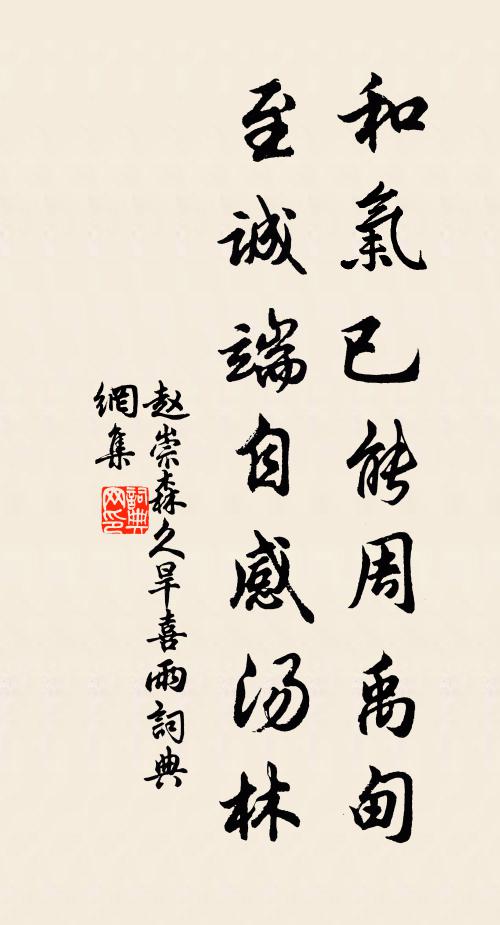 和氣已能周禹甸
至誠端自感汤林
赵崇森久旱喜雨詞典
網集
詞典
网印